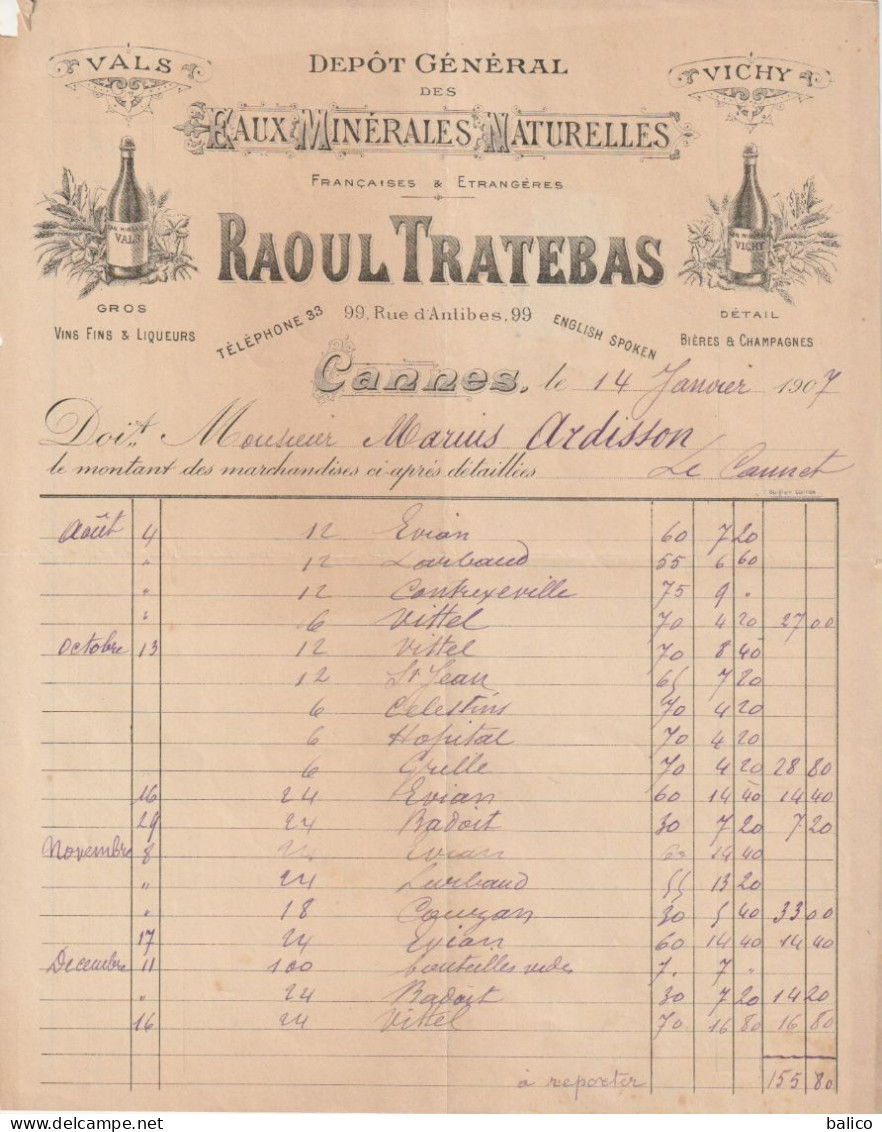 VALS
DEPÔT GÉNÉRAL
VICHY
DES
EAUX MINÉRALES NATURELLES
FRANÇAISES & ETRANGÈRES
VALS
VICHY
RAOUL TRATEBAS
GROS
VINS FINS & LIQUEURS
TÉLÉPHONE 33
99, Rue d'Antibes, 99
ENGLISH SPOKEN
DÉTAIL
BIÈRES & CHAMPAGNES
Cannes, le 14 Janvier 1907
Doit Monsieur Marius Ardisson
le montant des marchandises ci-après détaillées Le Cannet
Août 4 12 Evian 60 7 20
" 12 Larbaud 55 6 60
" 12 Contrexeville 75 9 "
" 6 Vittel 70 4 20 27 00
Octobre 13 12 Vittel 70 8 40
12 St Jean 65 7 20
6 Celestins 70 4 20
6 Hopital 70 4 20
6 Grille 70 4 20 28 80
16 24 Evian 60 14 40 14 40
29 24 Badoit 30 7 20 7 20
Novembre 8 24 Evian 60 14 40
" 24 Larbaud 55 13 20
" 18 Couzan 30 5 40 33 00
17 24 Evian 60 14 40 14 40
Decembre 11 100 bouteilles vides 7. 7 "
" 24 Badoit 30 7 20 14 20
16 24 Vittel 70 16 80 16 80
à reporter 155 80
balico